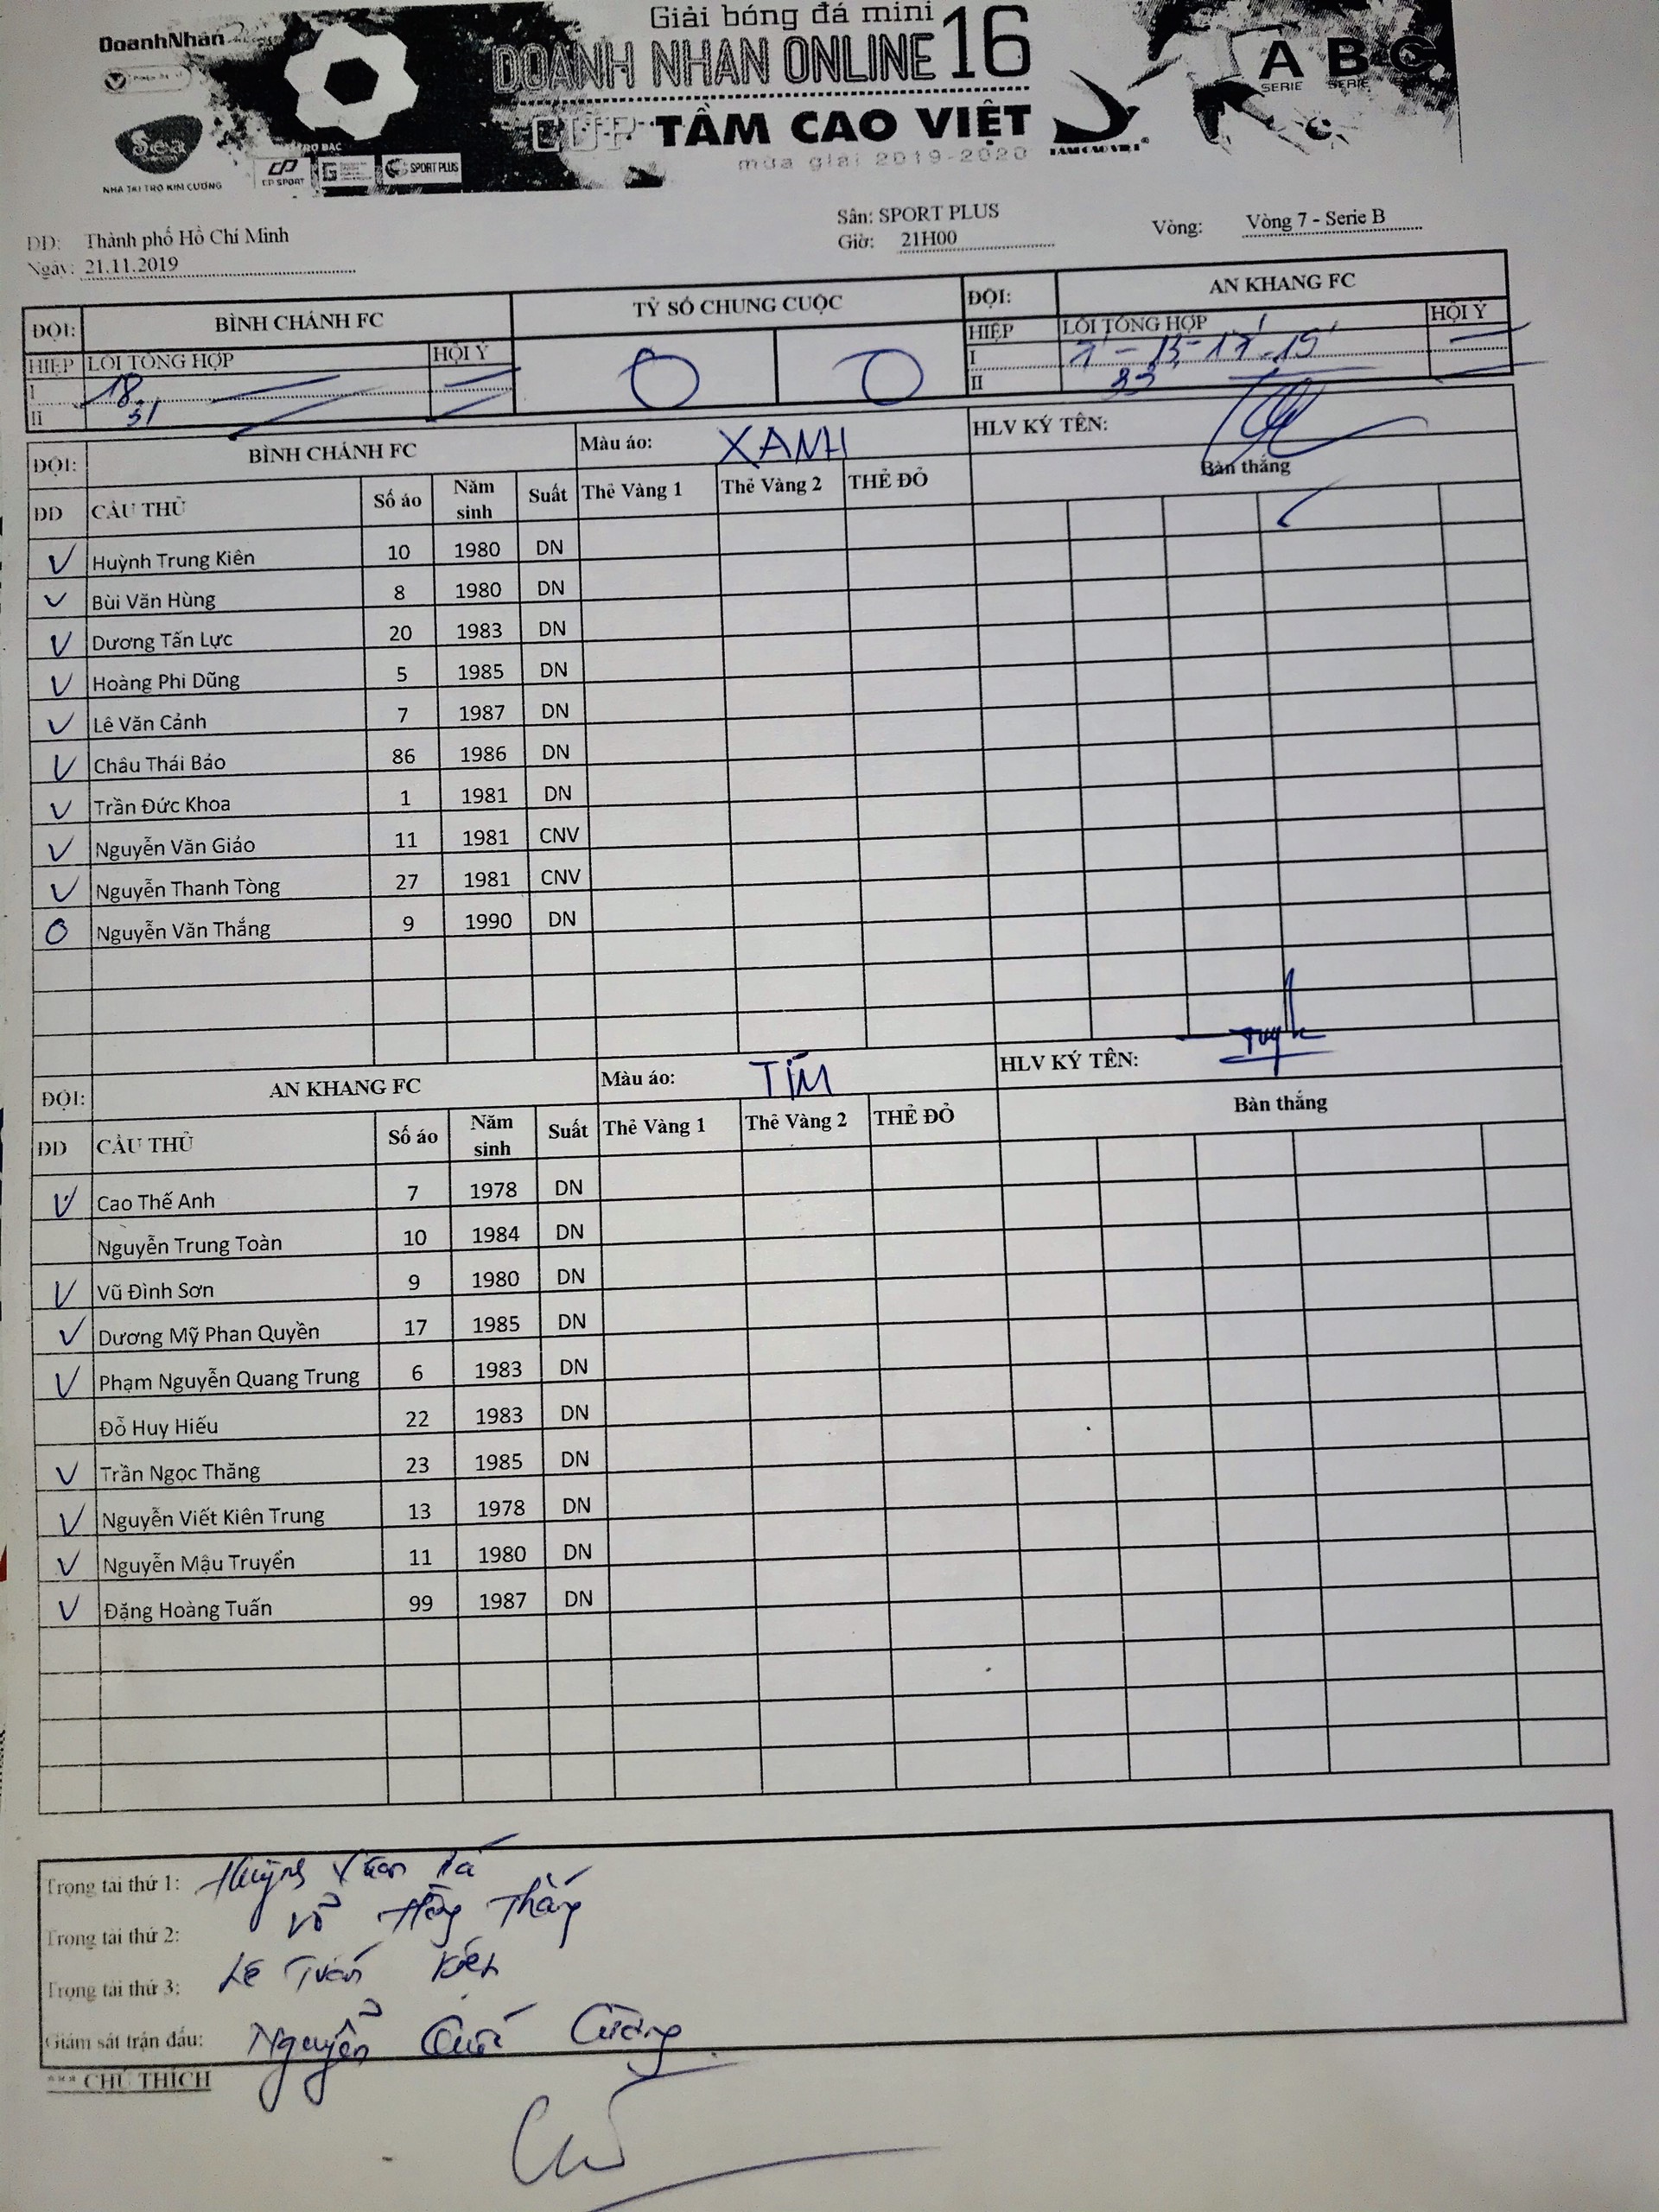 DoanhNhân
Giải bóng đá mini
DOANH NHAN ONLINE 16
CUP TẦM CAO VIỆT
mùa giải 2019-2020
TAM CAO VIET
A SERIE B SERIE C
Sea
NHÀ TÀI TRỢ KIM CƯƠNG
CP SPORT
SPORT PLUS
DD: Thành phố Hồ Chí Minh Sân: SPORT PLUS
Ngày: 21.11.2019 Giờ: 21H00 Vòng: Vòng 7 - Serie B
ĐỘI: BÌNH CHÁNH FC TỶ SỐ CHUNG CUỘC ĐỘI: AN KHANG FC
HIỆP LỖI TỔNG HỢP HỘI Ý 0 0 HIỆP LỖI TỔNG HỢP HỘI Ý
I 18 I
II 31 II 33
ĐỘI: BÌNH CHÁNH FC Màu áo: XANH HLV KÝ TÊN:
ĐD CẦU THỦ Số áo Năm sinh Suất Thẻ Vàng 1 Thẻ Vàng 2 THẺ ĐỎ Bàn thắng
V Huỳnh Trung Kiên 10 1980 DN
V Bùi Văn Hùng 8 1980 DN
V Dương Tấn Lực 20 1983 DN
V Hoàng Phi Dũng 5 1985 DN
V Lê Văn Cảnh 7 1987 DN
V Châu Thái Bảo 86 1986 DN
V Trần Đức Khoa 1 1981 DN
V Nguyễn Văn Giáo 11 1981 CNV
V Nguyễn Thanh Tòng 27 1981 CNV
O Nguyễn Văn Thắng 9 1990 DN
ĐỘI: AN KHANG FC Màu áo: TÍM HLV KÝ TÊN:
ĐD CẦU THỦ Số áo Năm sinh Suất Thẻ Vàng 1 Thẻ Vàng 2 THẺ ĐỎ Bàn thắng
V Cao Thế Anh 7 1978 DN
Nguyễn Trung Toàn 10 1984 DN
V Vũ Đình Sơn 9 1980 DN
V Dương Mỹ Phan Quyền 17 1985 DN
V Phạm Nguyễn Quang Trung 6 1983 DN
Đỗ Huy Hiếu 22 1983 DN
V Trần Ngọc Thăng 23 1985 DN
V Nguyễn Viết Kiên Trung 13 1978 DN
V Nguyễn Mậu Truyển 11 1980 DN
V Đặng Hoàng Tuấn 99 1987 DN
Trọng tài thứ 1: Huỳnh Văn
Trọng tài thứ 2: Võ Hồng Thắng
Trọng tài thứ 3: Lê Tuấn Kiệt
Giám sát trận đấu: Nguyễn Quốc Cường
*** CHÚ THÍCH